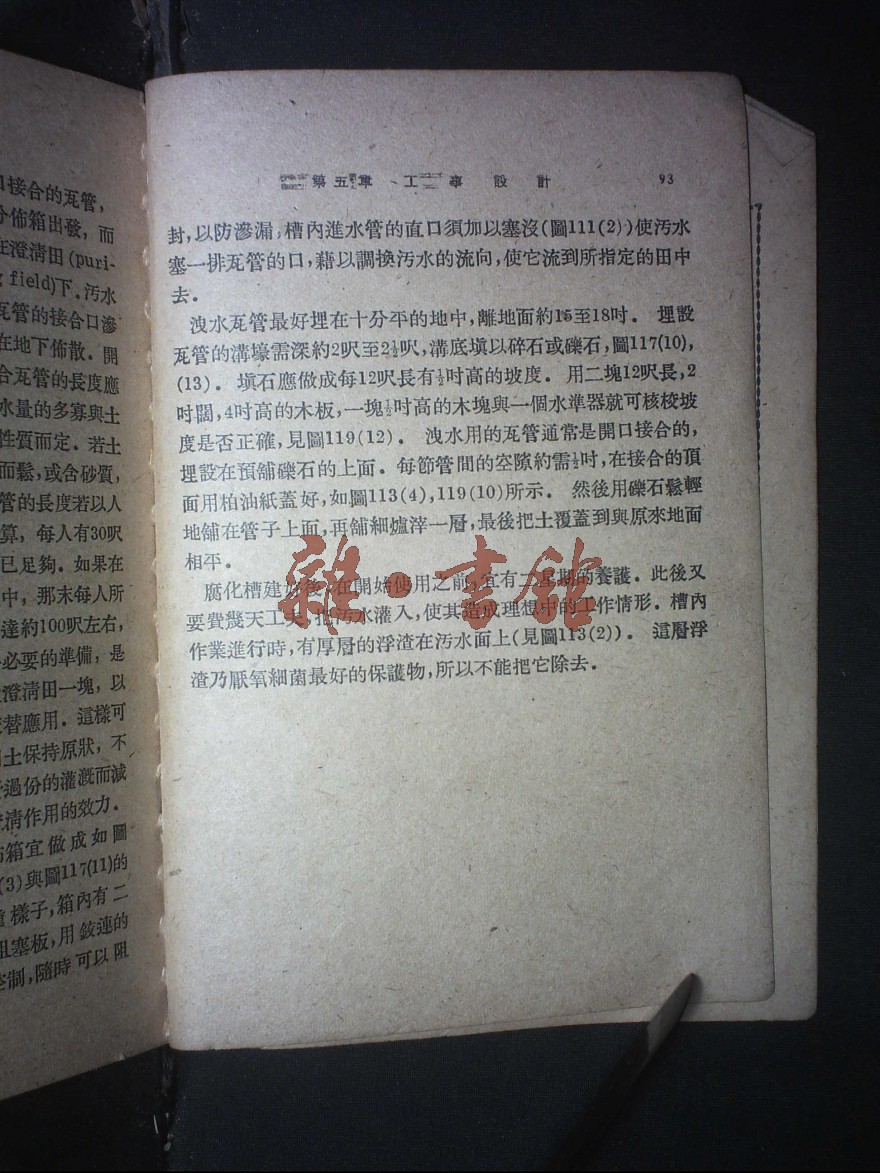 口接合的瓦管，
分佈箱出發，而
在澄清田(puri-
g field)下．汚水
瓦管的接合口滲
在地下佈散．開
合瓦管的長度應
水量的多寡與土
性質而定．若土
而鬆，或含砂質，
管的長度若以人
算，每人有30呎
已足夠．如果在
中，那末每人所
達約100呎左右，
必要的準備，是
澄清田一塊，以
替應用．這樣可
土保持原狀，不
過份的灌溉而減
清作用的效力．
箱宜做成如圖
(3)與圖117(11)的
樣子，箱內有二
阻塞板，用鉸連的
制，隨時可以阻
第五章 工事設計 93
封，以防滲漏，槽內進水管的直口須加以塞沒(圖111(2))使汚水
塞一排瓦管的口，藉以調換汚水的流向，使它流到所指定的田中
去．
洩水瓦管最好埋在十分平的地中，離地面約15至18吋． 埋設
瓦管的溝壕需深約2呎至2½呎，溝底塡以碎石或礫石，圖117(10)，
(13)． 塡石應做成每12呎長有½吋高的坡度． 用二塊12呎長，2
吋闊，4吋高的木板，一塊½吋高的木塊與一個水準器就可核校坡
度是否正確，見圖119(12)． 洩水用的瓦管通常是開口接合的，
埋設在預舖礫石的上面．每節管間的空隙約需½吋，在接合的頂
面用柏油紙蓋好，如圖113(4)，119(10)所示． 然後用礫石鬆輕
地舖在管子上面，再舖細爐滓一層，最後把土覆蓋到與原來地面
相平．
腐化槽建好後，在開始使用之前，宜有二星期的養護．此後又
要費幾天工夫，把汚水灌入，使其造成理想中的工作情形．槽內
作業進行時，有厚層的浮渣在汚水面上(見圖113(2))． 這層浮
渣乃厭氧細菌最好的保護物，所以不能把它除去．
雜·書館